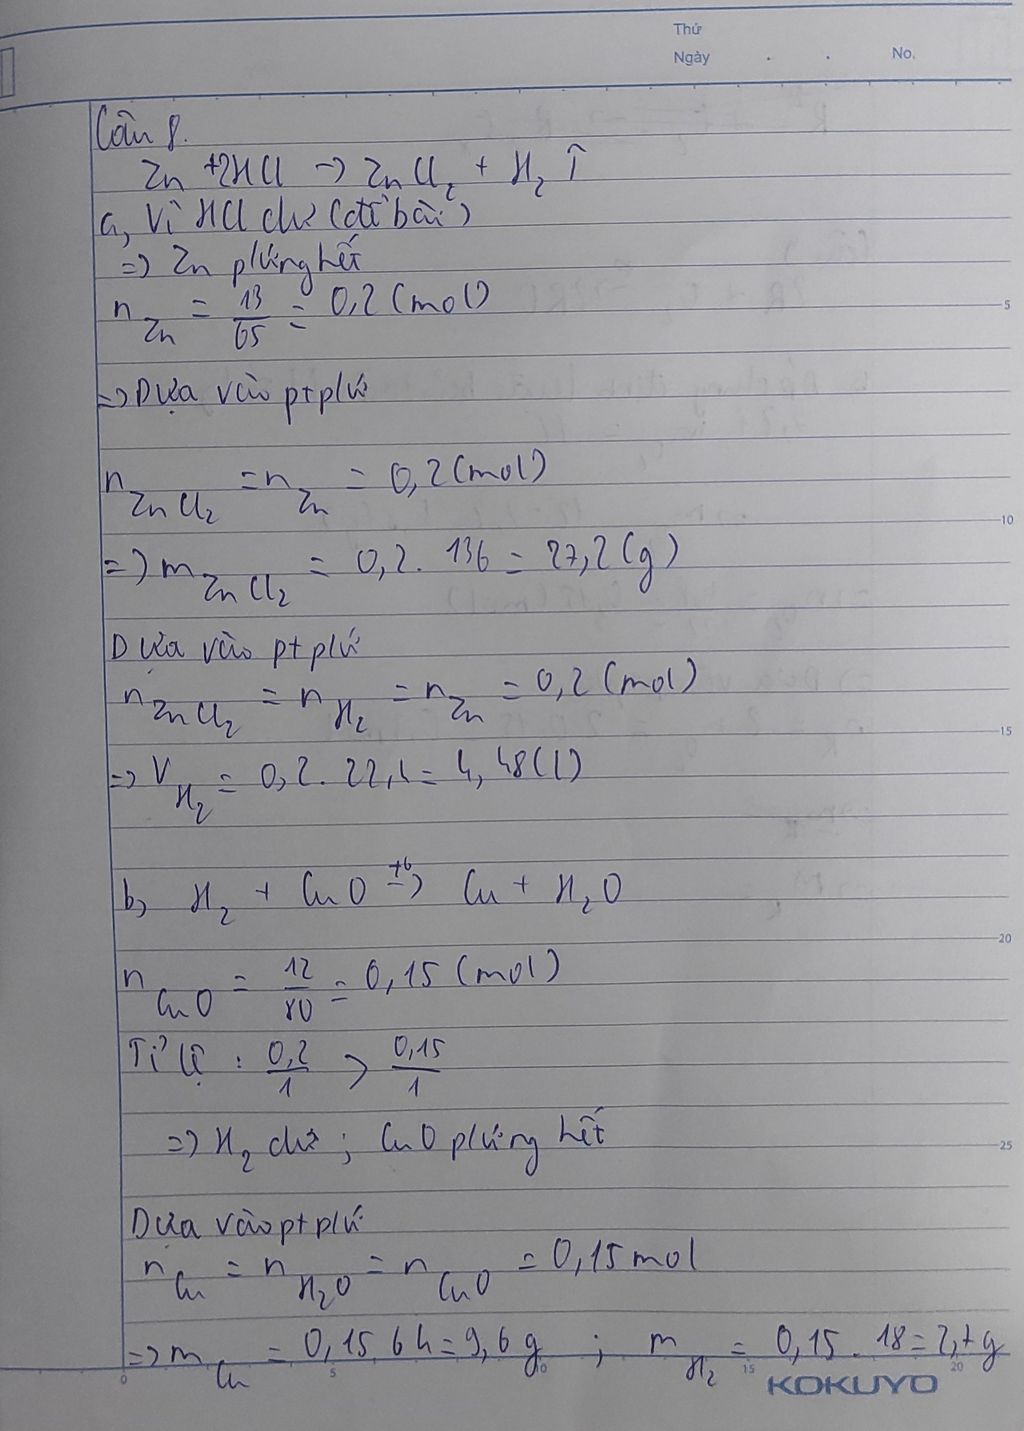 Thứ
Ngày . . No.
Câu 8.
Zn + 2HCl -> ZnCl₂ + H₂ ↑
a, Vì HCl dư (đề bài)
=> Zn pứng hết
n Zn = 13/65 = 0,2 (mol)
=> Dựa vào ptpứ
n ZnCl₂ = n Zn = 0,2 (mol)
=> m ZnCl₂ = 0,2 . 136 = 27,2 (g)
Dựa vào ptpứ
n ZnCl₂ = n H₂ = n Zn = 0,2 (mol)
=> V H₂ = 0,2 . 22,4 = 4,48 (l)
b, H₂ + CuO -> Cu + H₂O
n CuO = 12/80 = 0,15 (mol)
Tỉ lệ : 0,2/1 > 0,15/1
=> H₂ dư ; CuO pứng hết
Dựa vào ptpứ
n Cu = n H₂O = n CuO = 0,15 mol
=> m Cu = 0,15 . 64 = 9,6 g ; m H₂ = 0,15 . 18 = 2,7 g
5
10
15
20
25
0 5 10 15 20
KOKUYO